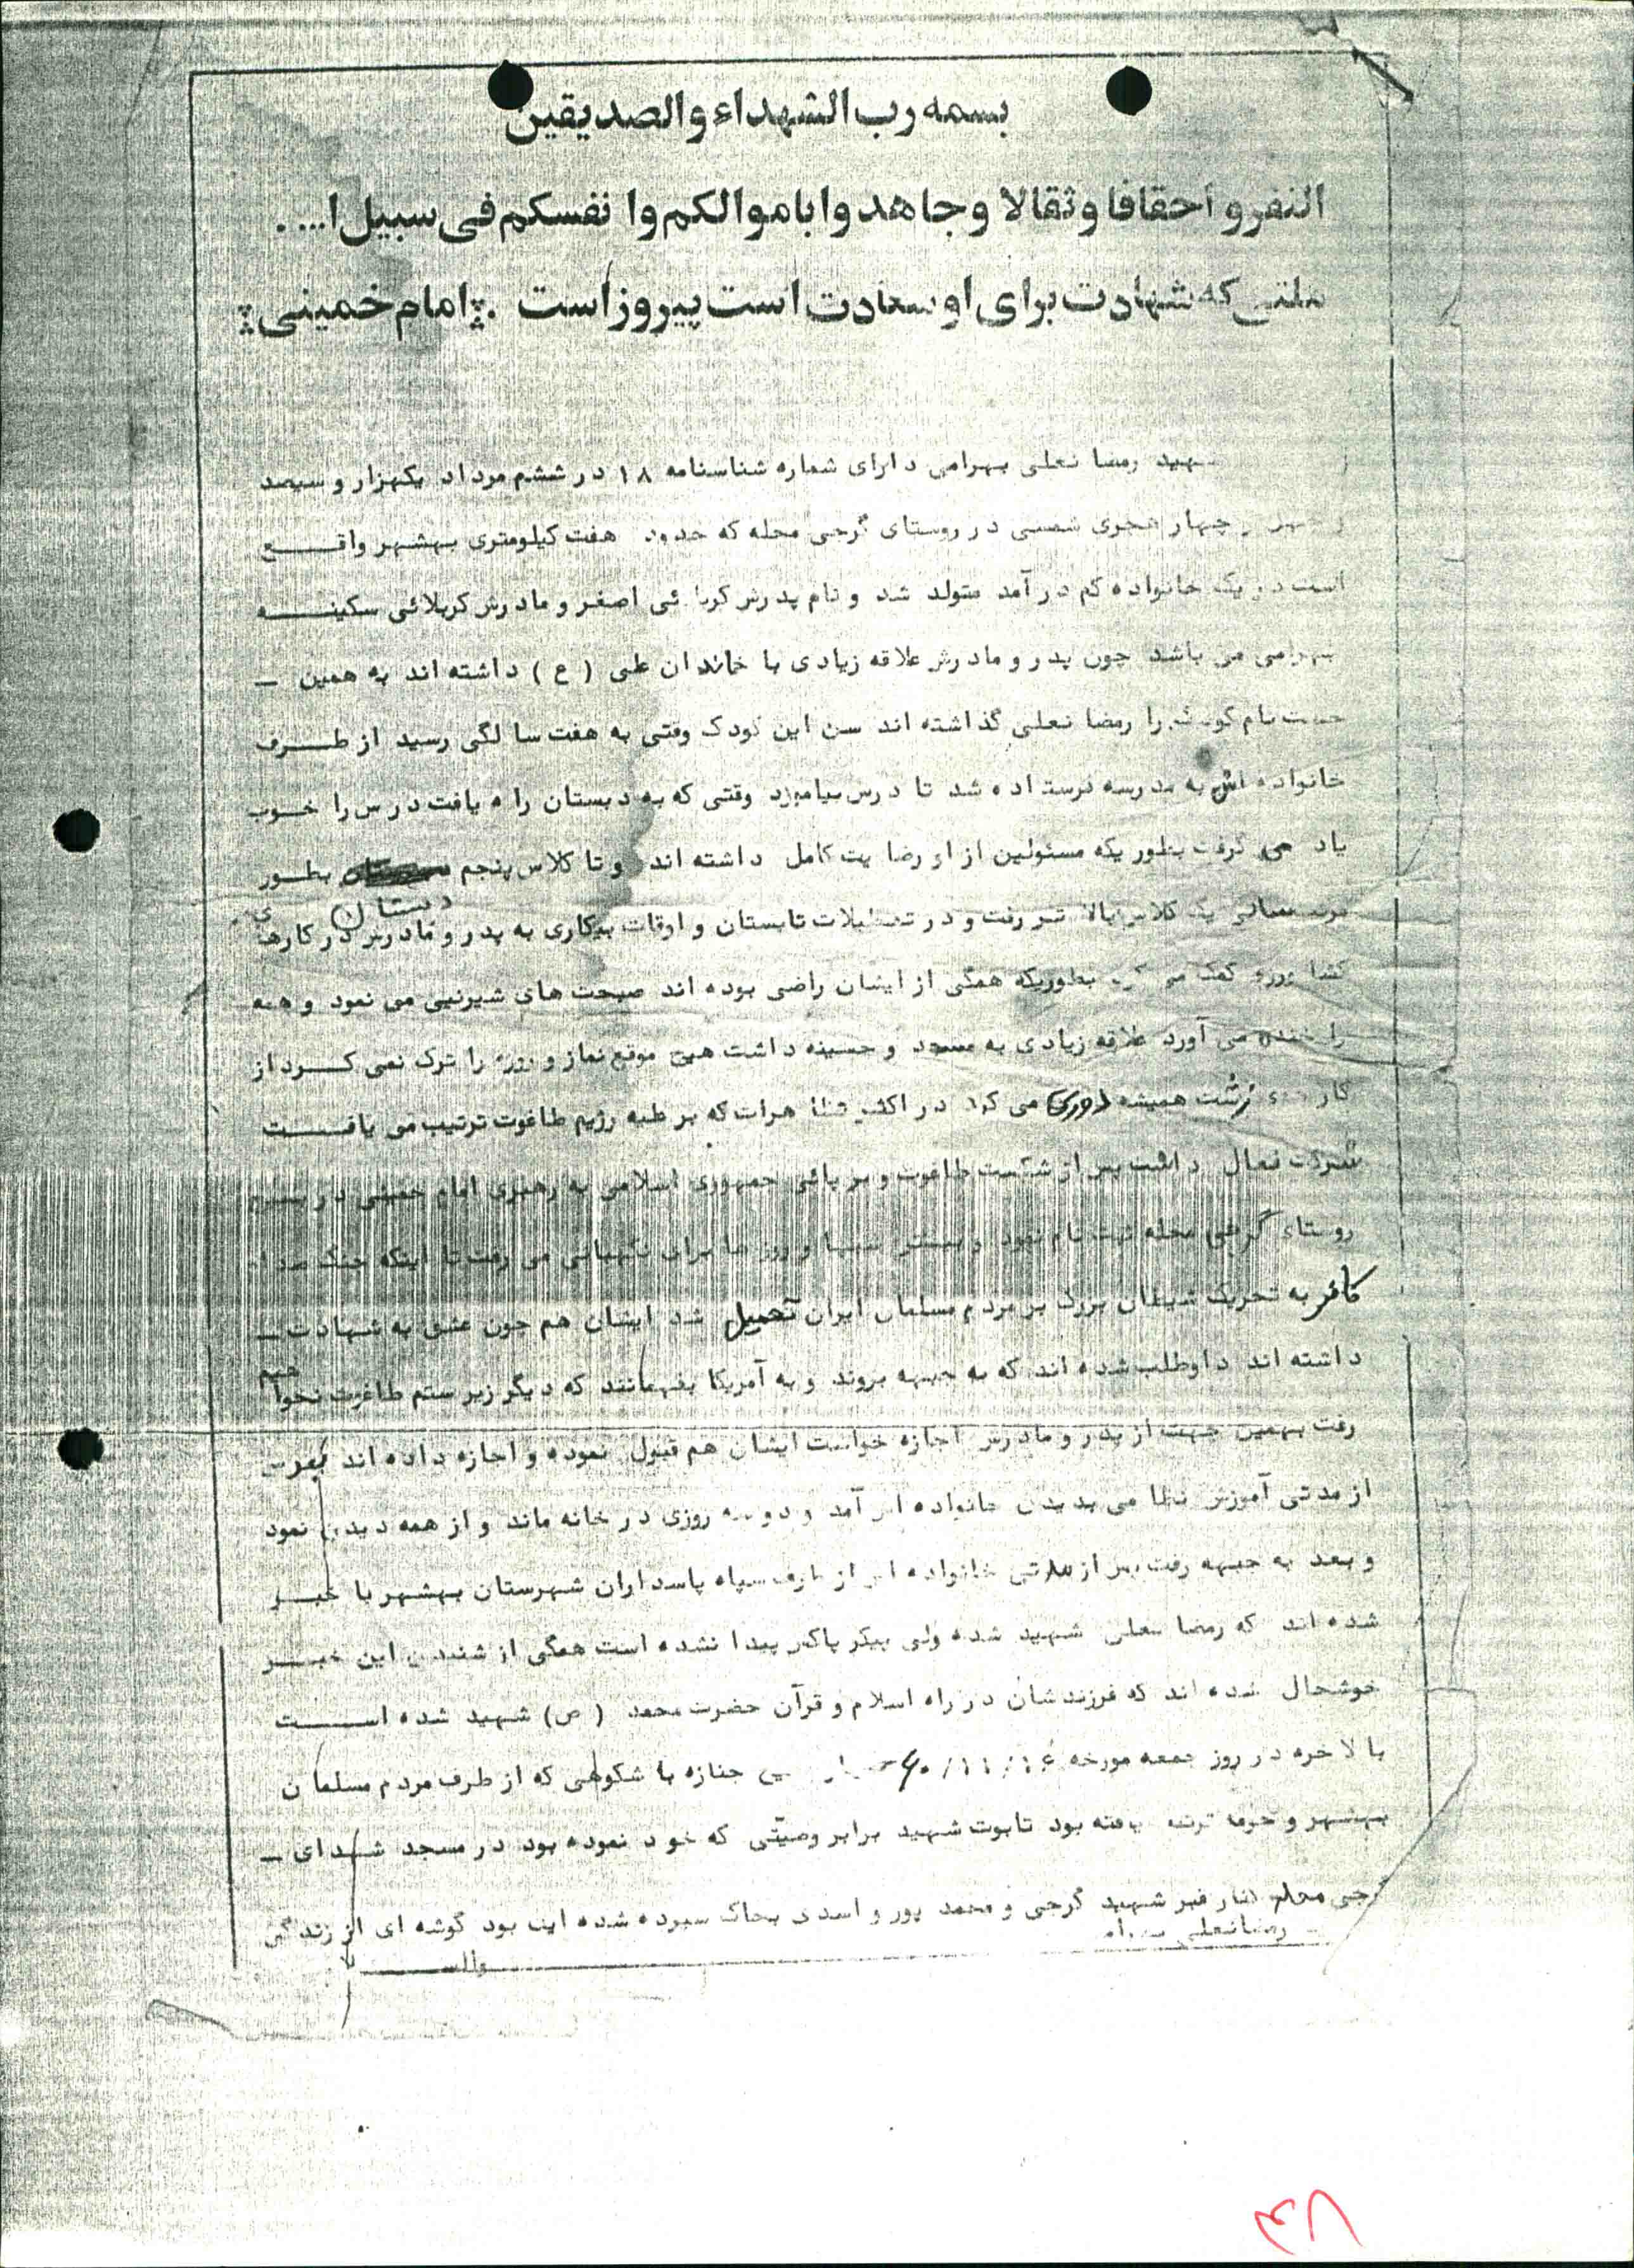 بسمه رب الشهداء والصدیقین
النفرو أحقافا وثقالا وجاهدوا باموالکم وا نفسکم فی سبیل ا....
ملتی که شهادت برای او سعادت است پیروز است . امام خمینی
شهید رمضا نعلی بهرامی دارای شماره شناسنامه ۱۸ در ششم مرداد یکهزار و سیصد
چهار هجری شمسی در روستای گرجی محله که حدود هفت کیلومتری بهشهر واقع
است در یک خانواده کم درآمد متولد شد و نام پدرش کربلائی اصغر و مادرش کربلائی سکینه
بهرامی می باشد چون پدر و مادرش علاقه زیادی با خاندان علی ( ع ) داشته اند به همین _
جهت نام کودک را رمضا نعلی گذاشته اند سن این کودک وقتی به هفت سا لگی رسید از طرف
خانواده اش به مدرسه فرستاده شد تا درس بیاموزد وقتی که به دبستان راه یافت درس را خوب
یاد می گرفت بطور یکه مسئولین از او رضا یت کامل داشته اند و تا کلاس پنجم دبستان بطور
یک کلاس بالا تر رفت و در تعطیلات تابستان و اوقات بیکاری به پدر و مادرش در کارهای
کشاورزی کمک می کرد بطوریکه همگی از ایشان راضی بوده اند صبحت های شیرنیی می نمود و همه
را خنده می آورد علاقه زیادی به مسجد و حسینه داشت هیچ موقع نماز و روزه را ترک نمی کرد از
کار زشت همیشه دوری می کرد در اکثر تظا هرات که بر علیه رژیم طاغوت ترتیب می یافت
شرکت فعال داشت پس از شکست طاغوت و بر پائی جمهوری اسلامی به رهبری امام خمینی در بسیج
روستاء گرجی محله ثبت نام نمود و بیشتر شبها و روز ها برای نگهبانی می رفت تا اینکه جنگ
کافر به تحریک شیطان بزرگ بر مردم مسلمان ایران تحمیل شد ایشان هم چون عشق به شهادت _
داشته اند داوطلب شده اند که به جبهه بروند و به آمریکا بفهمانند که دیگر زیر ستم طاغوت نخواهیم
رفت بهمین جهت از پدر و مادرش اجازه خواست ایشان هم قبول نموده و اجازه داده اند
از مدتی آموزش نظا می بدیدن خانواده اش آمد و دو سه روزی در خانه ماند و از همه دیدن نمود
و بعد به جبهه رفت پس از مدتی خانواده اش از طرف سپاه پاسداران شهرستان بهشهر با خبر
شده اند که رمضا نعلی شهید شده ولی پیکر پاکش پیدا نشده است همگی از شنیدن این خبر
خوشحال شده اند که فرزندشان در راه اسلام و قرآن حضرت محمد ( ص ) شهید شده است
با لا خره در روز جمعه مورخه ۱۶/ ۱۱/ ۶۰ جنازه با شکوهی که از طرف مردم مسلمان
بهشهر و حومه یافته بود تابوت شهید برابر وصیتی که خود نموده بود در مسجد شهدای _
گرجی محله کنار قبر شهید گرجی و محمد پور و اسدی بخاک سپرده شده این بود گوشه ای از زندگی
رمضانعلی
۳۸